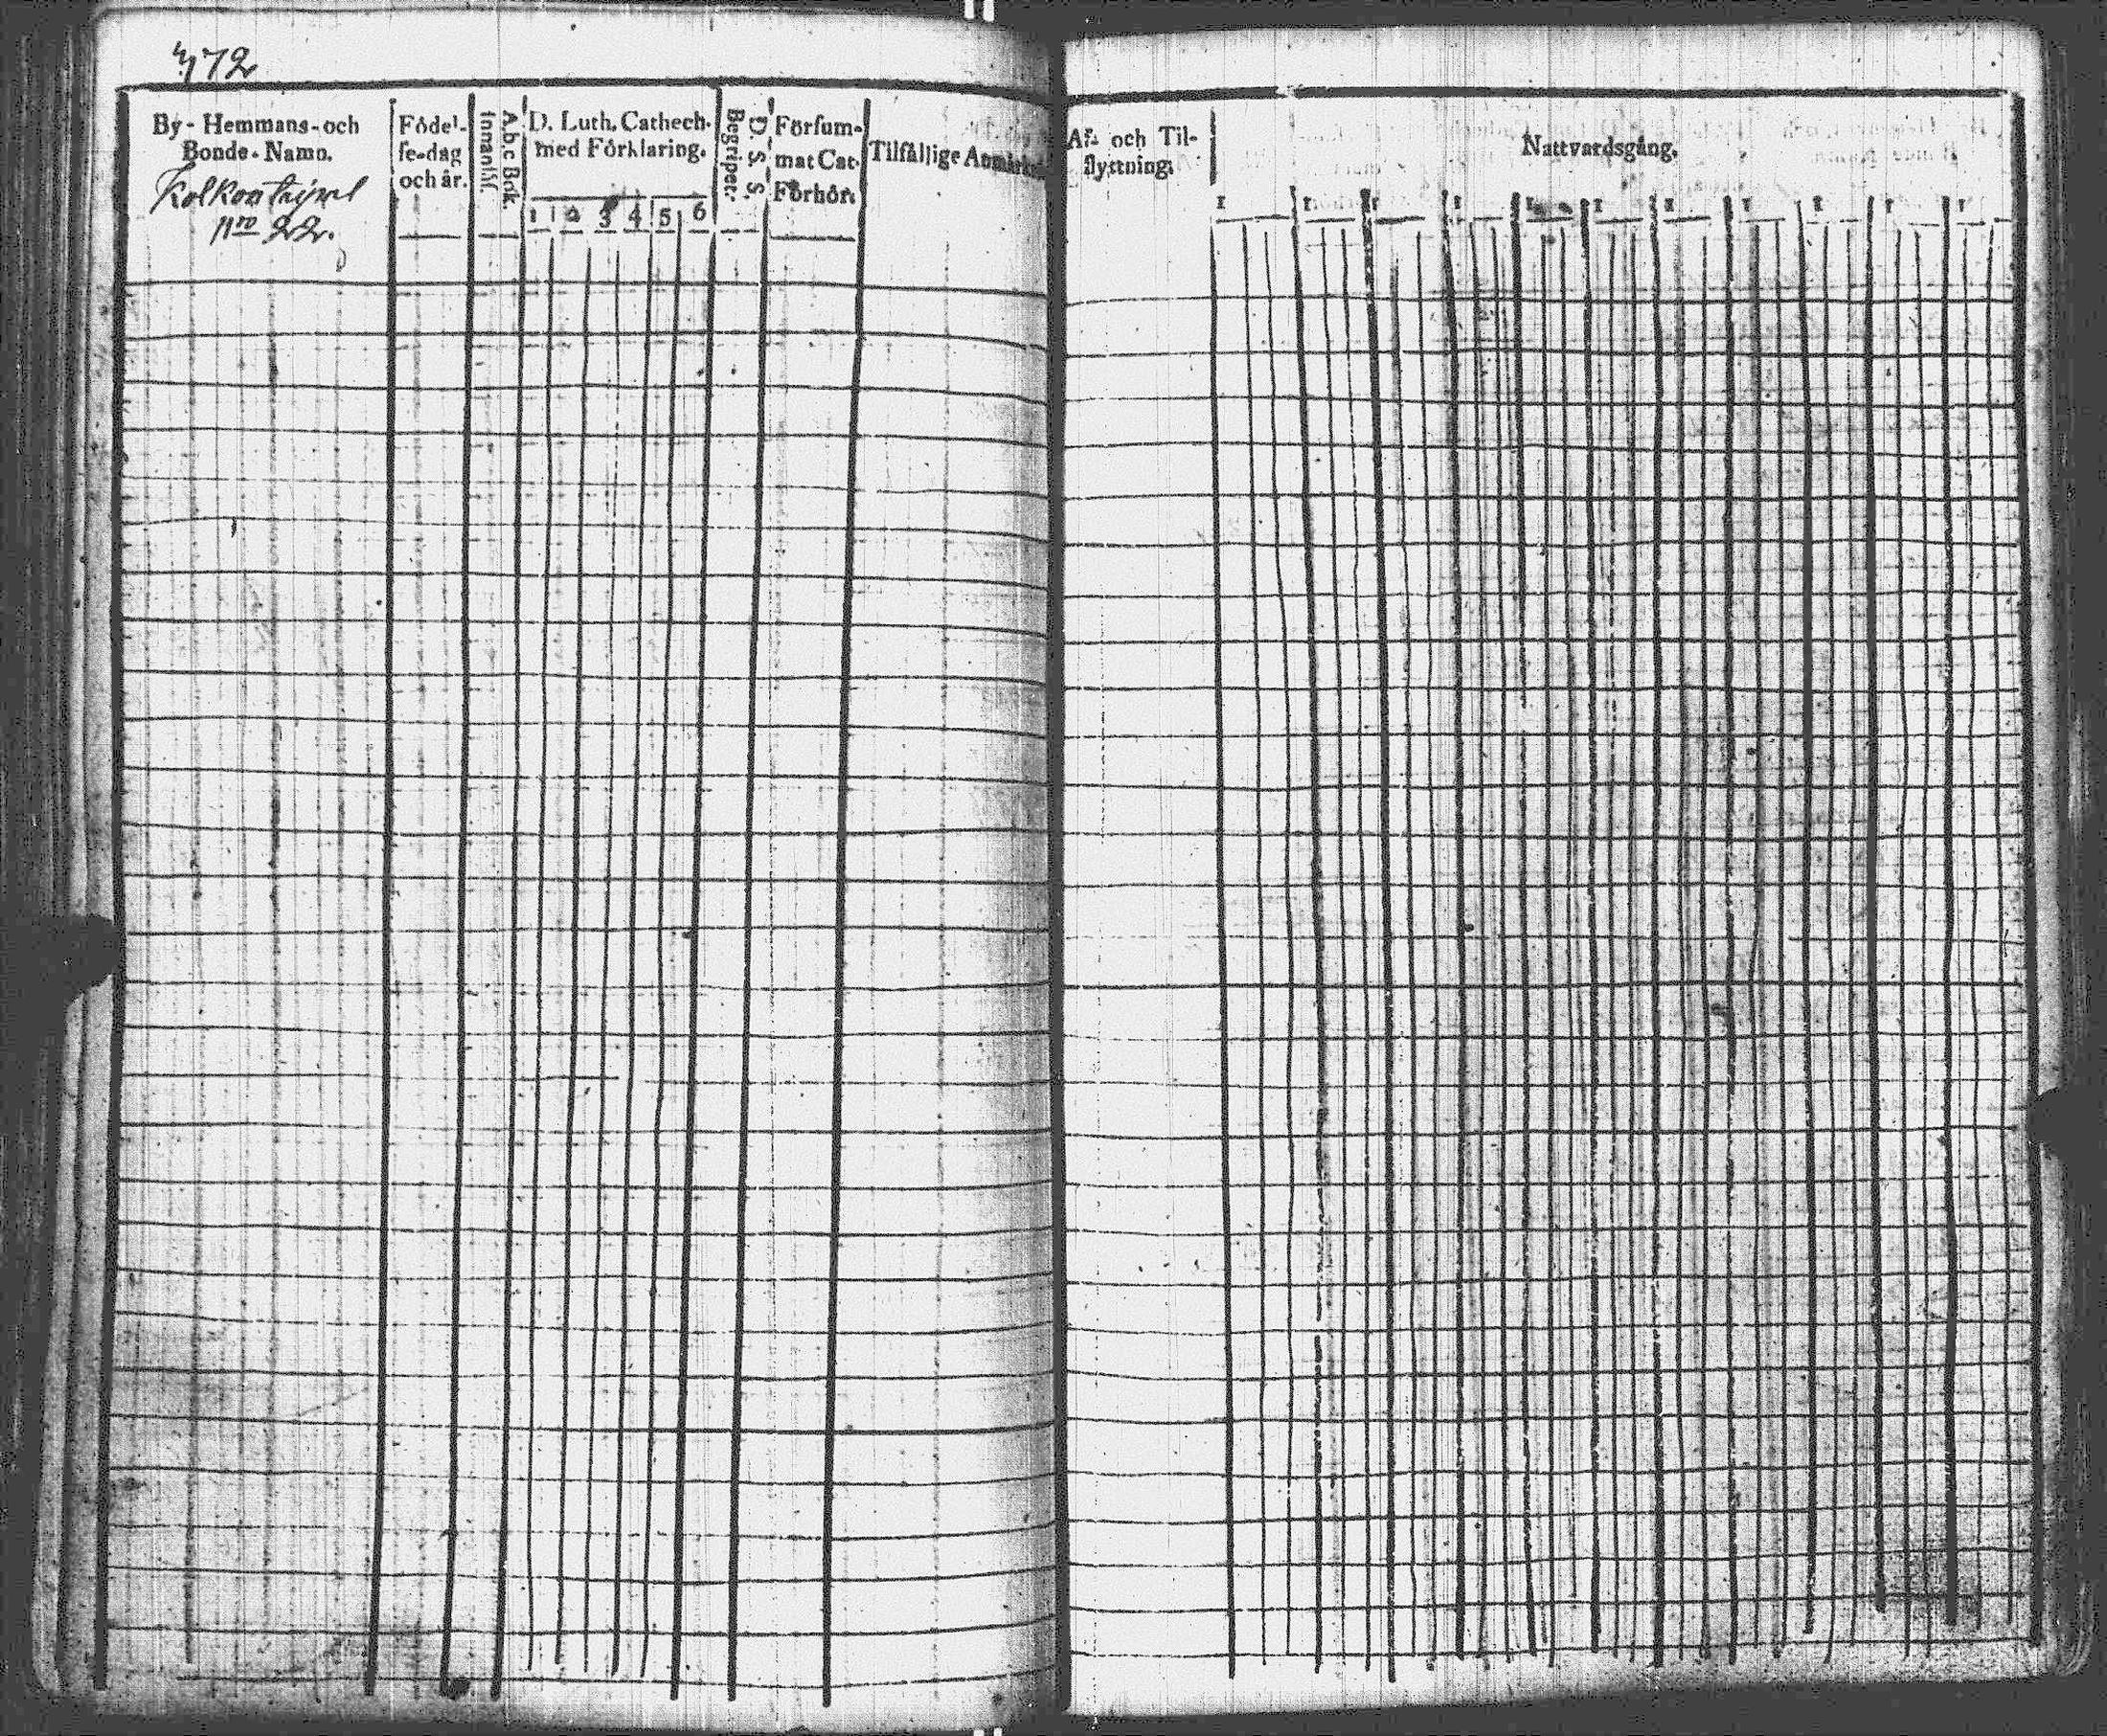 472
By- Hemmans- och
Bonde- Namn.
Kolkontrijwel
nro 22.
Födel-
se-dag
och år.
Innanläs.
A.b.c Bok.
D. Luth. Cathech.
med Förklaring.
1 2 3 4 5 6
Begripet.
D. S. S.
Försum-
mat Cat.
Förhör.
Tilfällige Anmärkn.
Af- och Til-
flyttning.
Nattvardsgång.
I I I I I I I I I I I